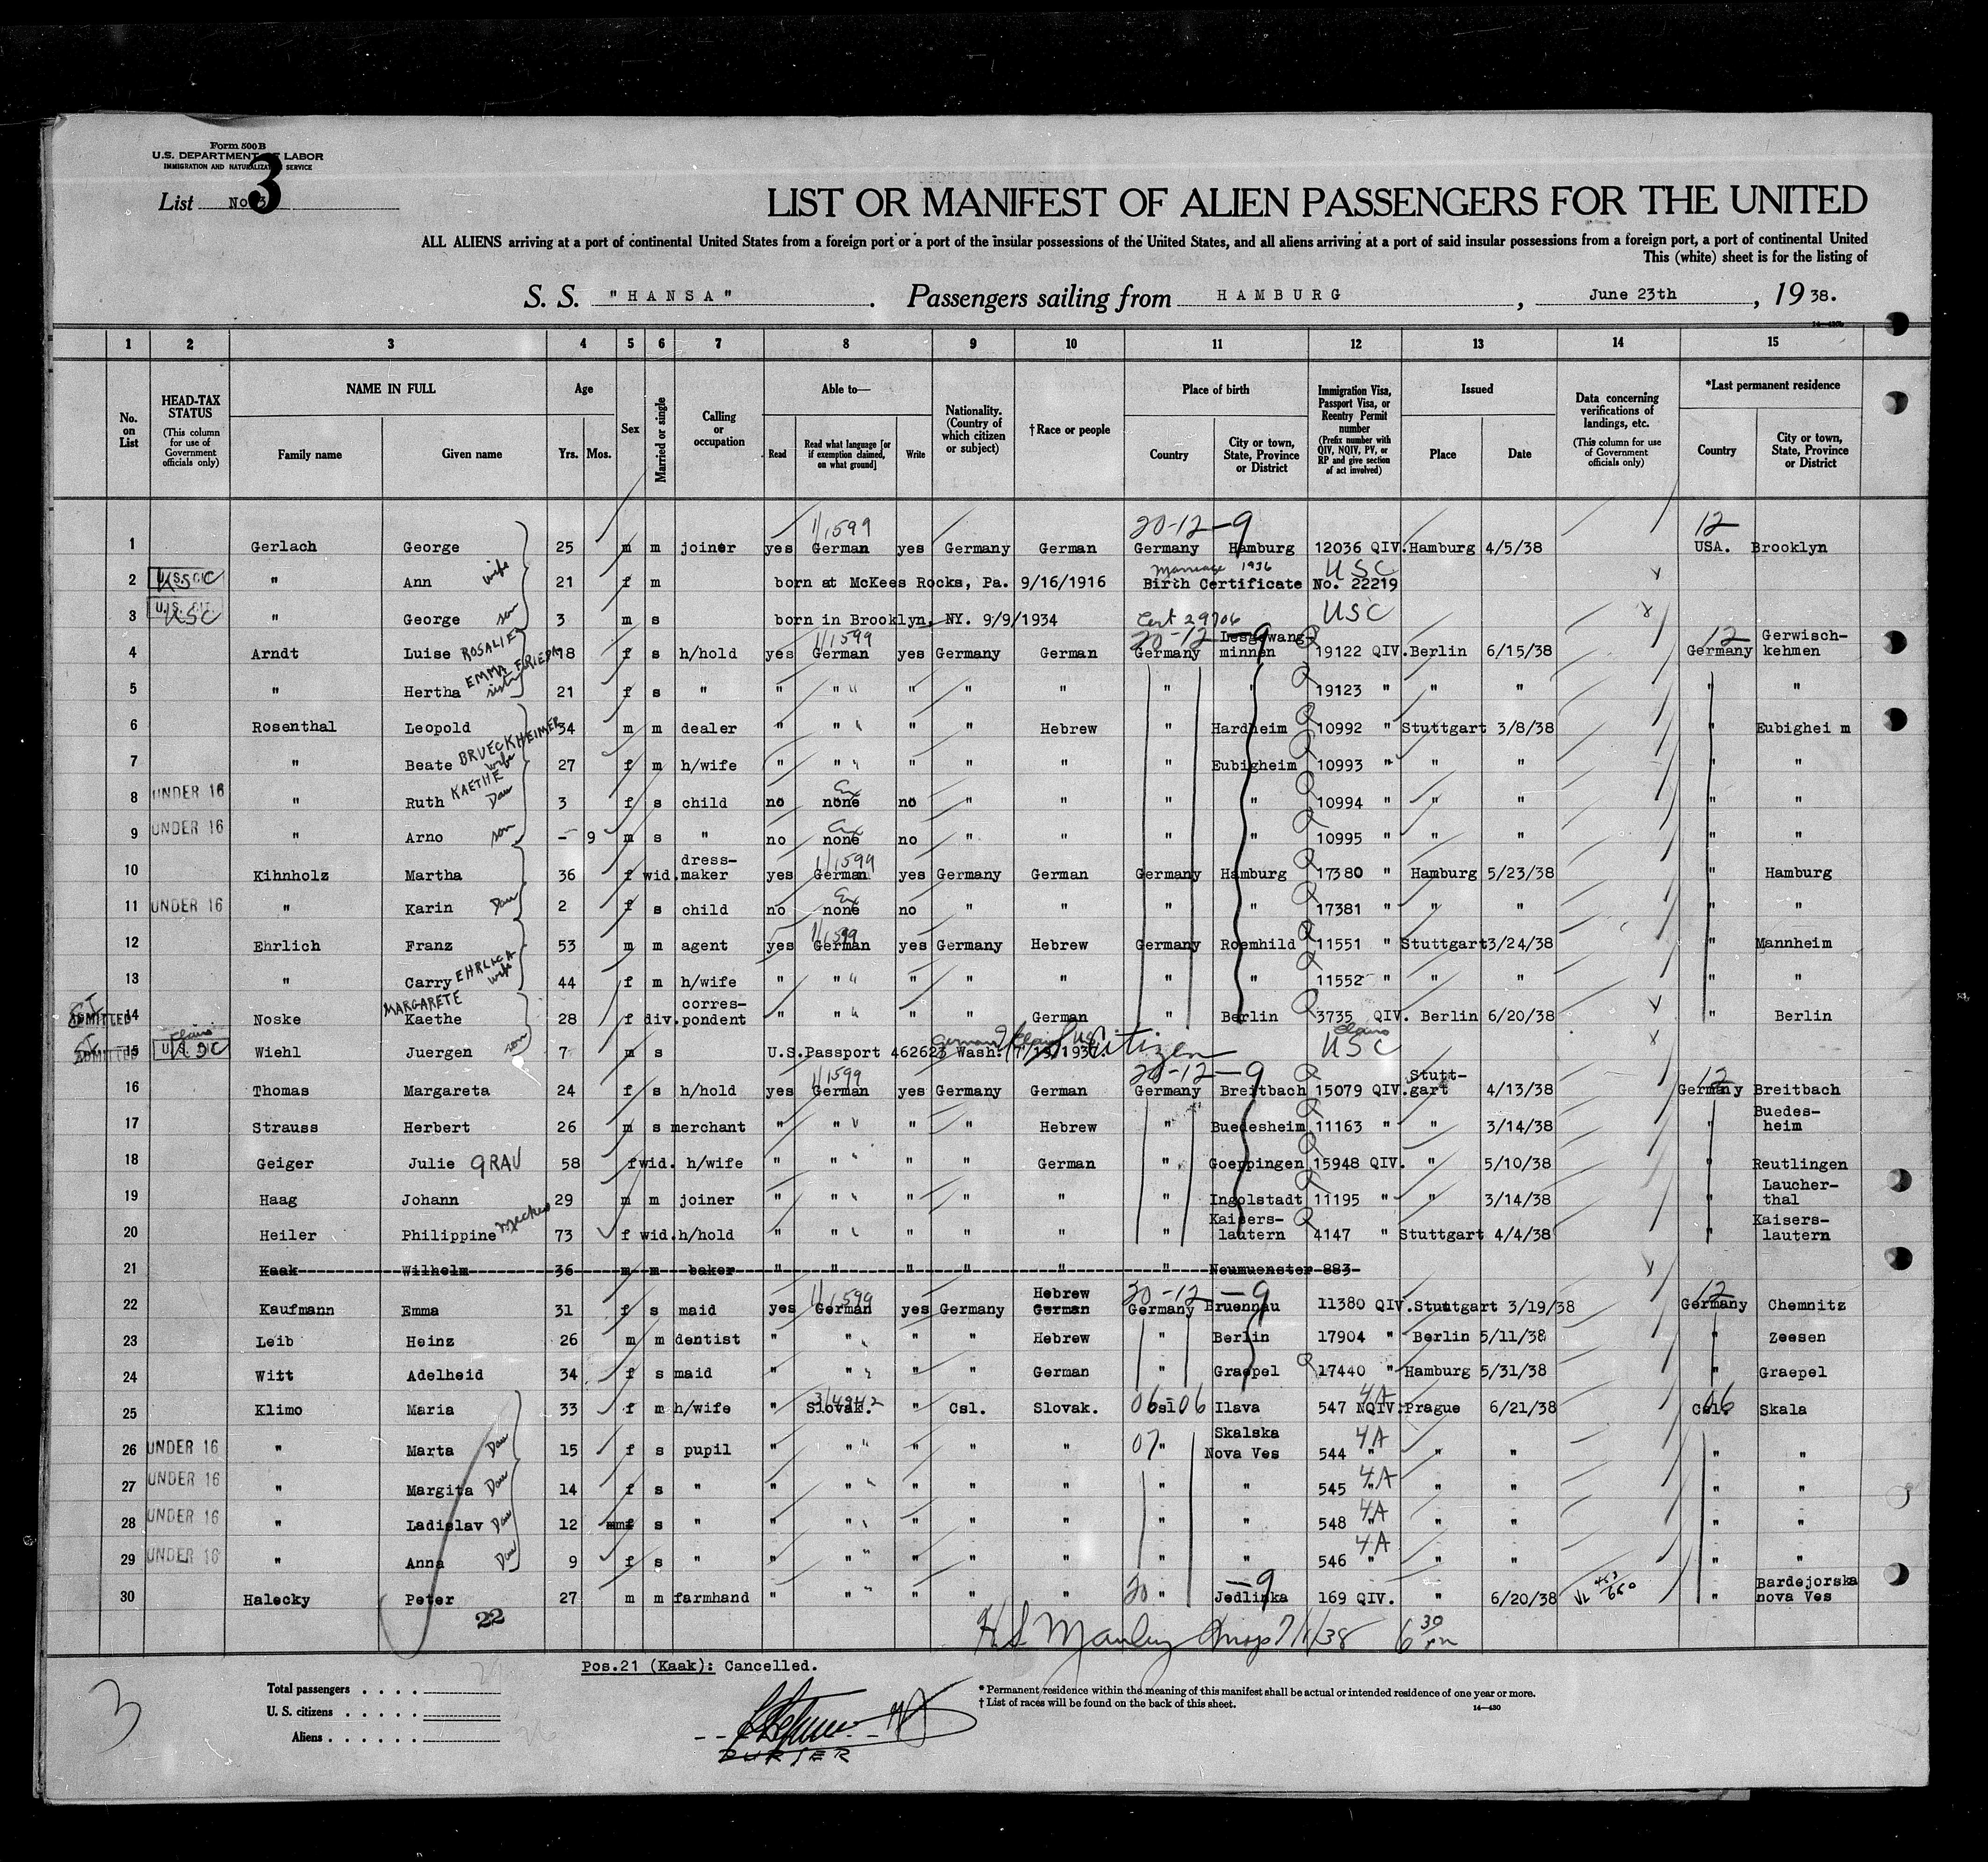 Form 500B
U.S. DEPARTMENT OF LABOR
IMMIGRATION AND NATURALIZATION SERVICE
List No. 3
3
LIST OR MANIFEST OF ALIEN PASSENGERS FOR THE UNITED
ALL ALIENS arriving at a port of continental United States from a foreign port or a port of the insular possessions of the United States, and all aliens arriving at a port of said insular possessions from a foreign port, a port of continental United
This (white) sheet is for the listing of
S. S. "HANSA". Passengers sailing from HAMBURG, June 23th, 1938.
14—430b
1 2 3 4 5 6 7 8 9 10 11 12 13 14 15
No. on List
HEAD-TAX STATUS (This column for use of Government officials only)
NAME IN FULL Family name Given name
Age Yrs. Mos.
Sex
Married or single
Calling or occupation
Able to— Read Read what language [or if exemption claimed, on what ground] Write
Nationality. (Country of which citizen or subject)
†Race or people
Place of birth Country City or town, State, Province or District
Immigration Visa, Passport Visa, or Reentry Permit number (Prefix number with QIV, NQIV, PV, or RP and give section of act involved)
Issued Place Date
Data concerning verifications of landings, etc. (This column for use of Government officials only)
*Last permanent residence Country City or town, State, Province or District
1/1599 20-12-9 12
1 Gerlach George 25 m m joiner yes German yes Germany German Germany Hamburg 12036 QIV. Hamburg 4/5/38 USA. Brooklyn
Marriage 1936 USC
2 U.S. CIT. USC " Ann wife 21 f m born at McKees Rocks, Pa. 9/16/1916 Birth Certificate No. 22219
3 U.S. CIT. USC " George son 3 m s born in Brooklyn, NY. 9/9/1934 Cert 29706 USC
1/1599 20-12-9 12
4 Arndt Luise ROSALIE 18 f s h/hold yes German yes Germany German Germany Lesgewang-minnen 19122 QIV. Berlin 6/15/38 Germany Gerwisch-kehmen
5 " Hertha EMMA FRIEDA sister 21 f s " " " " " " " " 19123 " " " " "
6 Rosenthal Leopold 34 m m dealer " " " " Hebrew " Hardheim 10992 " Stuttgart 3/8/38 " Eubighei m
7 " Beate BRUECKHEIMER wife 27 f m h/wife " " " " " " Eubigheim 10993 " " " " "
8 UNDER 16 " Ruth KAETHE Dau 3 f s child no none Ex no " " " " 10994 " " " " "
9 UNDER 16 " Arno son - 9 m s " no none Ex no " " " " 10995 " " " " "
1/1599
10 Kihnholz Martha 36 f wid. dress-maker yes German yes Germany German Germany Hamburg 17380 " Hamburg 5/23/38 " Hamburg
11 UNDER 16 " Karin Dau 2 f s child no none Ex no " " " " 17381 " " " " "
1/1599
12 Ehrlich Franz 53 m m agent yes German yes Germany Hebrew Germany Roemhild 11551 " Stuttgart 3/24/38 " Mannheim
13 " Carry EHRLICH wife 44 f m h/wife " " " " " " " 11552 " " " " "
14 ADMITTED Noske MARGARETE Kaethe 28 f div. corres-pondent " " " " German " Berlin 3735 QIV. Berlin 6/20/38 " Berlin
15 ADMITTED U.S. Wiehl Juergen son 7 m s U.S.Passport 462623 Wash. Citizen claims USC
1/1599 20-12-9 12
16 Thomas Margareta 24 f s h/hold yes German yes Germany German Germany Breitbach 15079 QIV. Stutt-gart 4/13/38 Germany Breitbach
17 Strauss Herbert 26 m s merchant " " " " Hebrew " Buedesheim 11163 " " 3/14/38 " Buedes-heim
18 Geiger Julie GRAU 58 f wid. h/wife " " " " German " Goeppingen 15948 QIV. " 5/10/38 " Reutlingen
19 Haag Johann 29 m m joiner " " " " " " Ingolstadt 11195 " " 3/14/38 " Laucher-thal
20 Heiler Philippine 73 f wid. h/hold " " " " " " Kaisers-lautern 4147 " Stuttgart 4/4/38 " Kaisers-lautern
21 Kaak Wilhelm 36 m m baker " " " " " " Neumuenster 883
1/1599 20-12-9 12
22 Kaufmann Emma 31 f s maid yes German yes Germany Hebrew German Germany Bruennau 11380 QIV. Stuttgart 3/19/38 Germany Chemnitz
23 Leib Heinz 26 m m dentist " " " " Hebrew " Berlin 17904 " Berlin 5/11/38 " Zeesen
24 Witt Adelheid 34 f s maid " " " " German " Graepel 17440 " Hamburg 5/31/38 " Graepel
25 Klimo Maria 33 f m h/wife " Slovak. " Csl. Slovak. Csl 06-06 Ilava 547 NQIV. 4A Prague 6/21/38 Csl. 06 Skala
26 UNDER 16 " Marta Dau 15 f s pupil " " " " " 07 " Skalska Nova Ves 544 " 4A " " " "
27 UNDER 16 " Margita Dau 14 f s " " " " " " " " 545 " 4A " " " "
28 UNDER 16 " Ladislav Dau 12 f s " " " " " " " " 548 " 4A " " " "
29 UNDER 16 " Anna Dau 9 f s " " " " " " " " 546 " 4A " " " "
30 Halecky Peter 27 m m farmhand " " " " " 20 " -9 Jedlinka 169 QIV. " 6/20/38 " Bardejorska nova Ves
22
H S Manley Insp 7/1/38 6 30 pm
Pos.21 (Kaak): Cancelled.
3
Total passengers . . . .
U. S. citizens . . . . .
Aliens . . . . . .
PURSER
* Permanent residence within the meaning of this manifest shall be actual or intended residence of one year or more.
† List of races will be found on the back of this sheet.
14—430